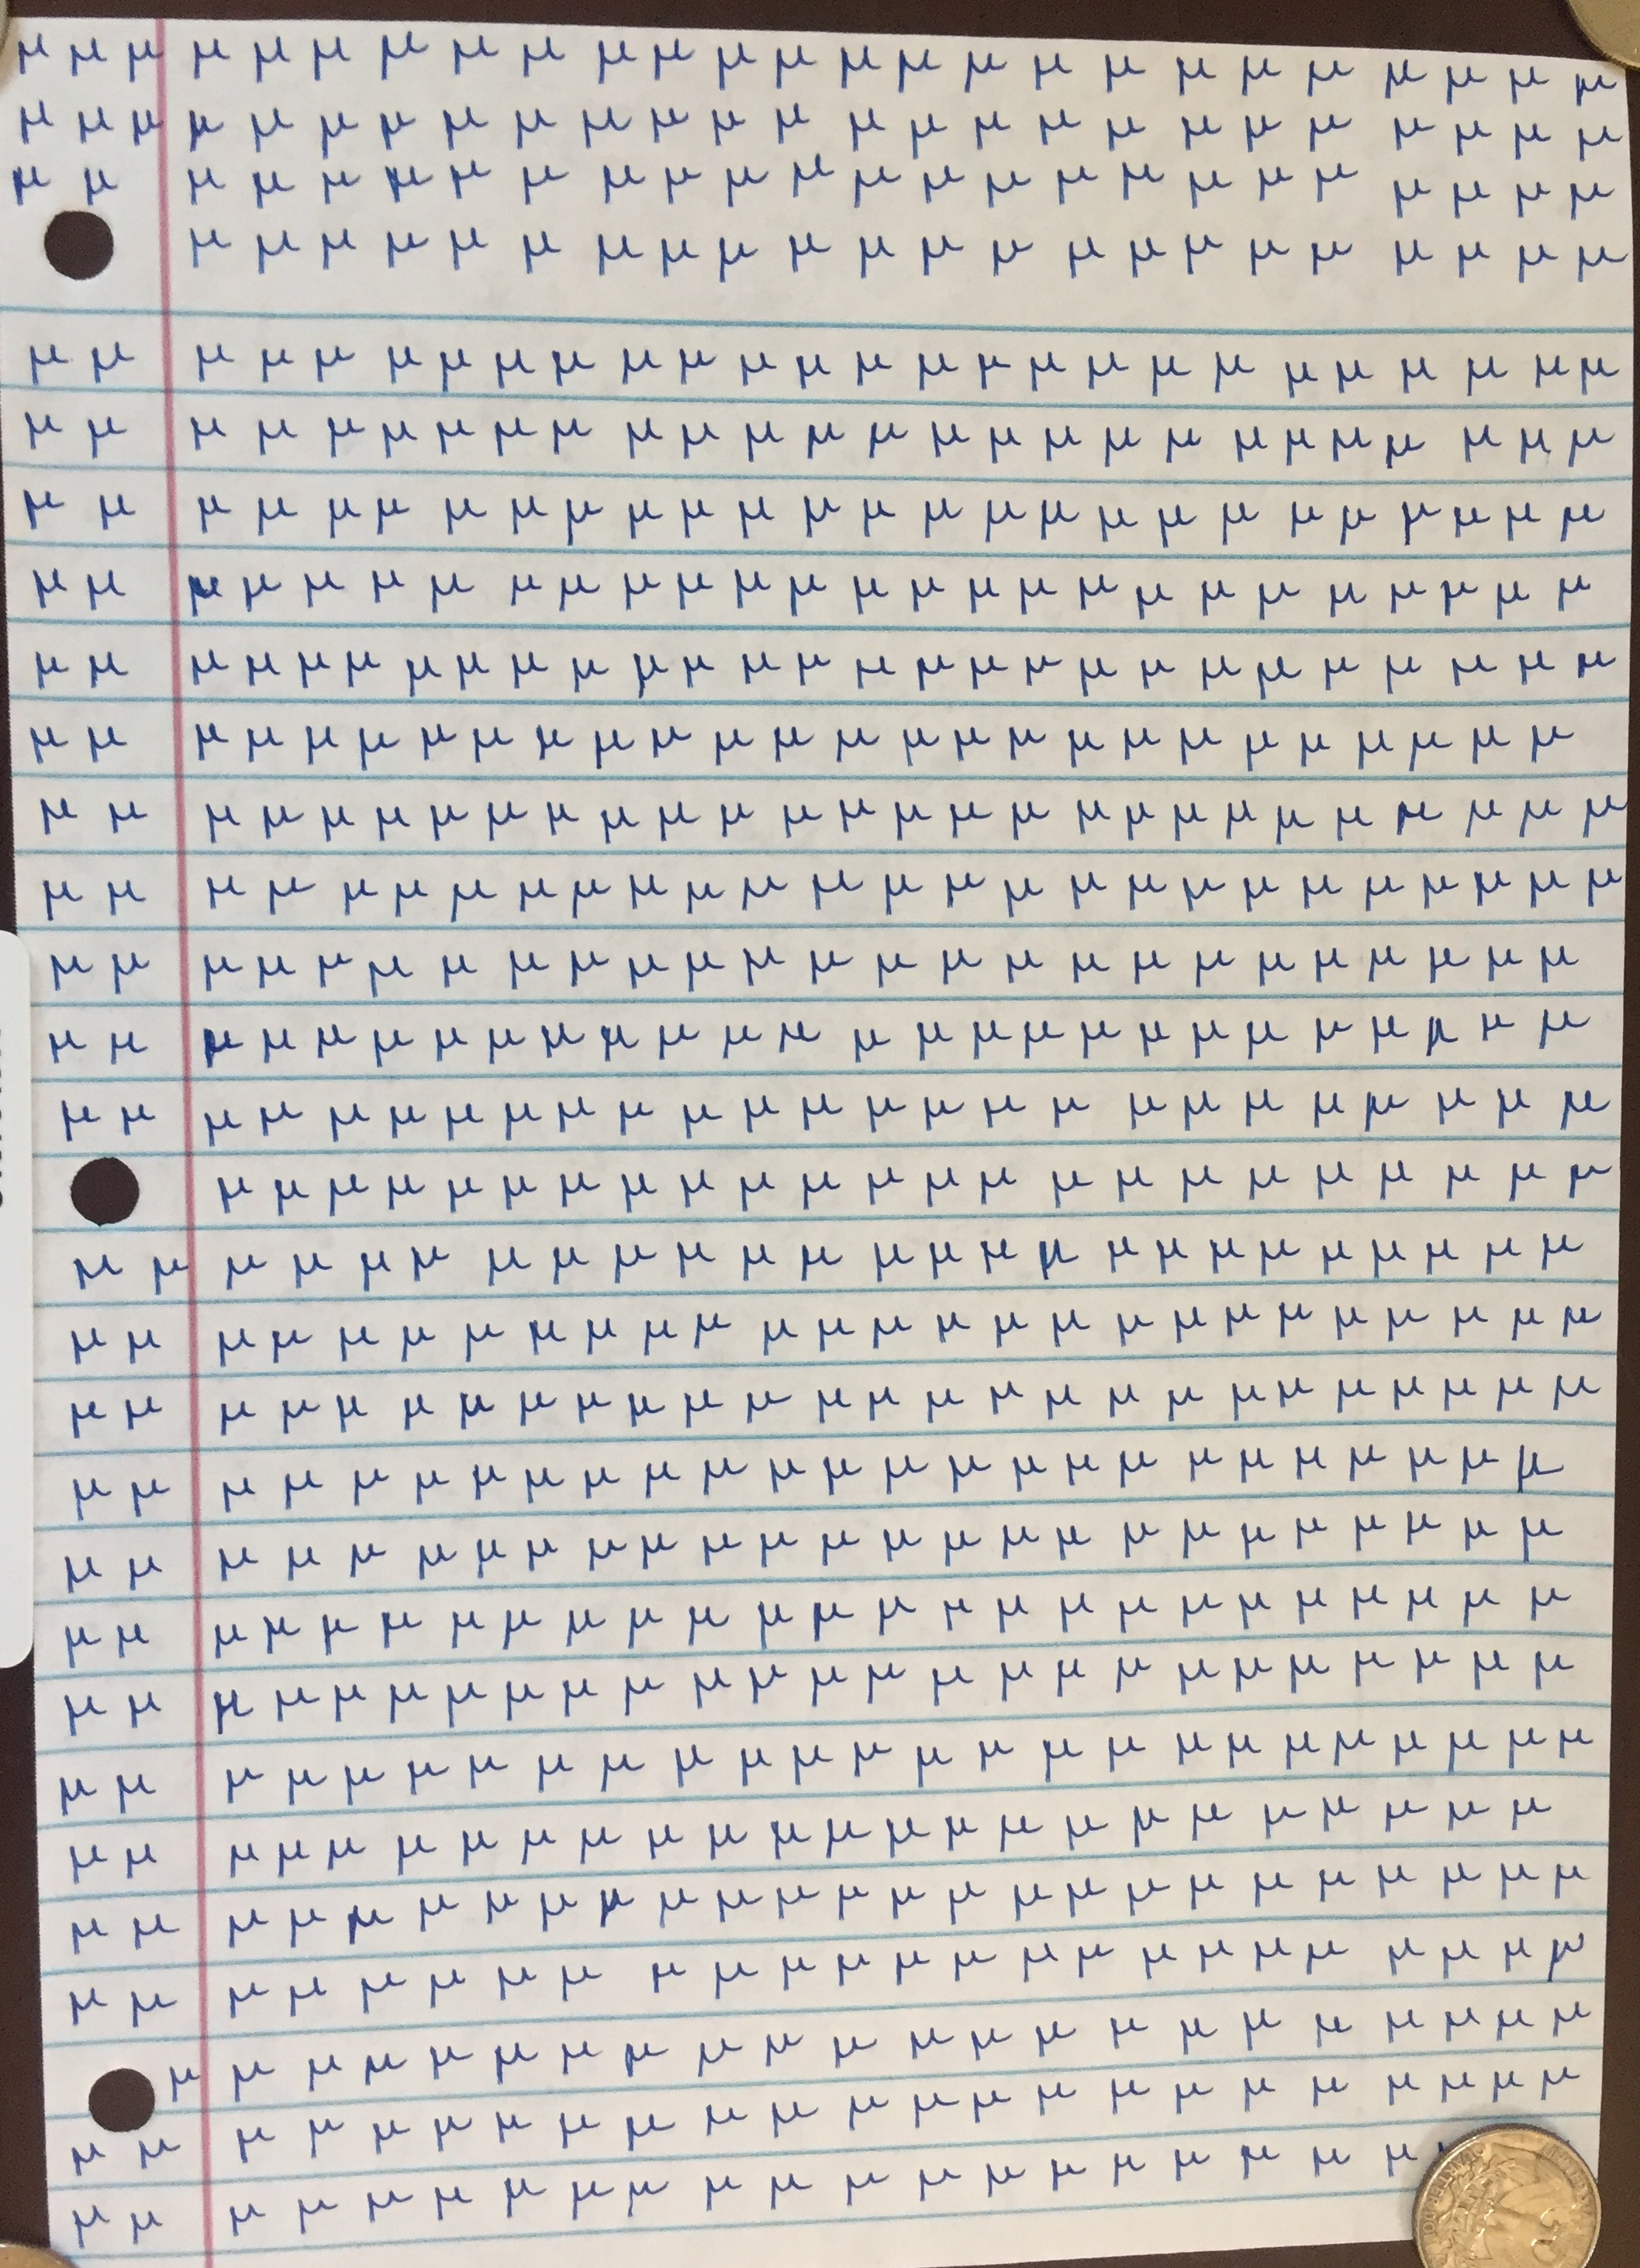 μ μ μ μ μ μ μ μ μ μ μ μ μ μ μ μ μ μ μ μ μ μ μ μ μ
μ μ μ μ μ μ μ μ μ μ μ μ μ μ μ μ μ μ μ μ μ μ μ μ μ
μ μ μ μ μ μ μ μ μ μ μ μ μ μ μ μ μ μ μ μ μ μ μ μ
μ μ μ μ μ μ μ μ μ μ μ μ μ μ μ μ μ μ μ μ μ μ
μ μ μ μ μ μ μ μ μ μ μ μ μ μ μ μ μ μ μ μ μ μ μ μ μ μ
μ μ μ μ μ μ μ μ μ μ μ μ μ μ μ μ μ μ μ μ μ μ μ μ μ μ
μ μ μ μ μ μ μ μ μ μ μ μ μ μ μ μ μ μ μ μ μ μ μ μ μ μ
μ μ μ μ μ μ μ μ μ μ μ μ μ μ μ μ μ μ μ μ μ μ μ μ μ μ
μ μ μ μ μ μ μ μ μ μ μ μ μ μ μ μ μ μ μ μ μ μ μ μ μ μ μ
μ μ μ μ μ μ μ μ μ μ μ μ μ μ μ μ μ μ μ μ μ μ μ μ μ μ
μ μ μ μ μ μ μ μ μ μ μ μ μ μ μ μ μ μ μ μ μ μ μ μ μ μ μ
μ μ μ μ μ μ μ μ μ μ μ μ μ μ μ μ μ μ μ μ μ μ μ μ μ μ
μ μ μ μ μ μ μ μ μ μ μ μ μ μ μ μ μ μ μ μ μ μ μ μ μ
μ μ μ μ μ μ μ μ μ μ μ μ μ μ μ μ μ μ μ μ μ μ μ μ μ μ
μ μ μ μ μ μ μ μ μ μ μ μ μ μ μ μ μ μ μ μ μ μ μ μ μ
μ μ μ μ μ μ μ μ μ μ μ μ μ μ μ μ μ μ μ μ μ μ μ
μ μ μ μ μ μ μ μ μ μ μ μ μ μ μ μ μ μ μ μ μ μ μ μ μ
μ μ μ μ μ μ μ μ μ μ μ μ μ μ μ μ μ μ μ μ μ μ μ μ μ μ
μ μ μ μ μ μ μ μ μ μ μ μ μ μ μ μ μ μ μ μ μ μ μ μ μ μ
μ μ μ μ μ μ μ μ μ μ μ μ μ μ μ μ μ μ μ μ μ μ μ μ μ
μ μ μ μ μ μ μ μ μ μ μ μ μ μ μ μ μ μ μ μ μ μ μ μ μ
μ μ μ μ μ μ μ μ μ μ μ μ μ μ μ μ μ μ μ μ μ μ μ μ μ
μ μ μ μ μ μ μ μ μ μ μ μ μ μ μ μ μ μ μ μ μ μ μ μ μ
μ μ μ μ μ μ μ μ μ μ μ μ μ μ μ μ μ μ μ μ μ μ μ μ μ
μ μ μ μ μ μ μ μ μ μ μ μ μ μ μ μ μ μ μ μ μ μ μ μ
μ μ μ μ μ μ μ μ μ μ μ μ μ μ μ μ μ μ μ μ μ μ μ μ μ
μ μ μ μ μ μ μ μ μ μ μ μ μ μ μ μ μ μ μ μ μ μ μ μ
μ μ μ μ μ μ μ μ μ μ μ μ μ μ μ μ μ μ μ μ μ μ
μ μ μ μ μ μ μ μ μ μ μ μ μ μ μ μ μ μ μ μ μ μ μ
μ μ μ μ μ μ μ μ μ μ μ μ μ μ μ μ μ μ μ μ